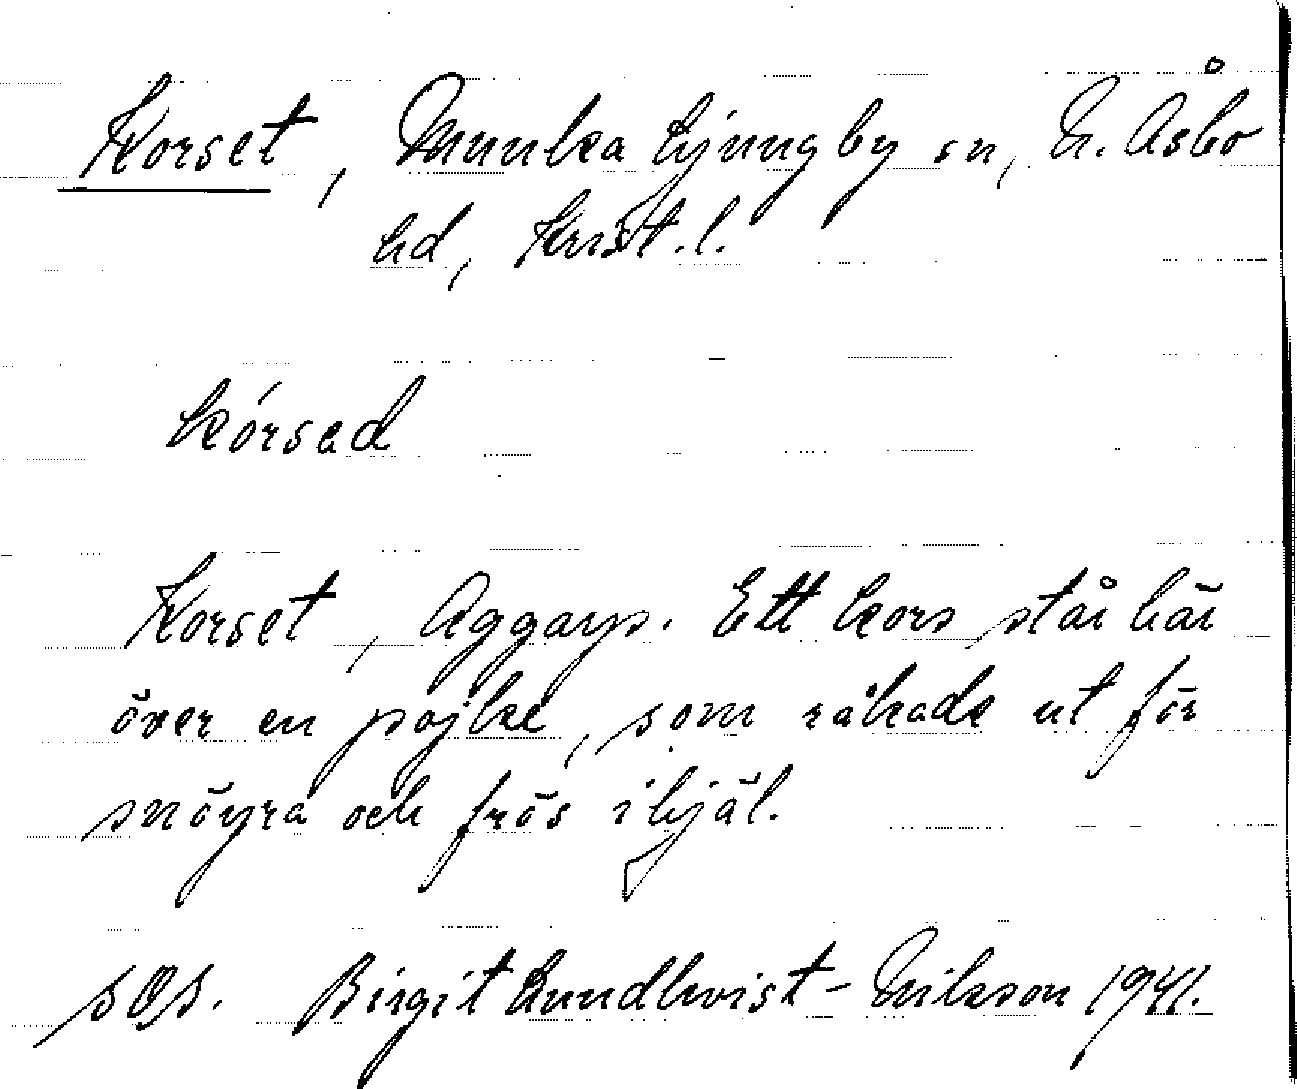 Korset, Munka Ljungby sn, N. Åsbo
hd, Krist. l.
kórsad
Korset, Aggarp. Ett kors står här
över en pojke, som råkade ut för
snöyra och frös ihjäl.
Birgit Lundkvist-Nilsson 1941.